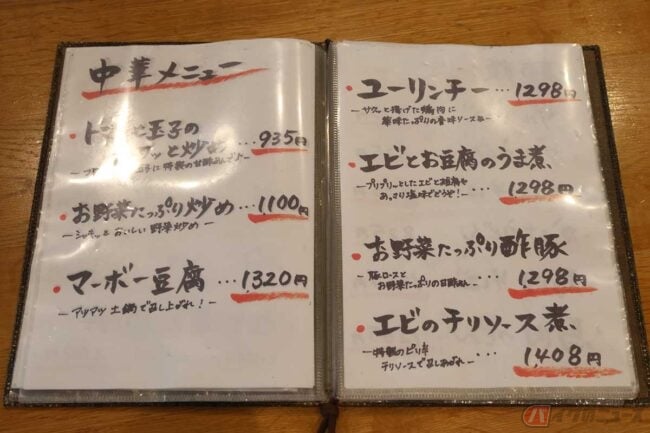 中華メニュー
・トマトと玉子の
フワッと炒め…935円
お野菜たっぷり炒め…1100円
ーシャキッとおいしい野菜炒めー
・マーボー豆腐…1,320円
ーアツアツ土鍋で召し上がれ！ー
・ユーリンチー…1298円
ーサクッと揚げた鶏肉に
薬味たっぷりの香味ソースをー
・エビとお豆腐のうま煮、
ープリプリッとしたエビと豆腐を
あっさり塩味でどうぞ！ー
…1298円
・お野菜たっぷり酢豚
ー豚ロースと
お野菜たっぷりの甘酢あんー
…1,298円
・エビのチリソース煮、
ー特製のピリ辛
チリソースで召しあがれー
…1,408円